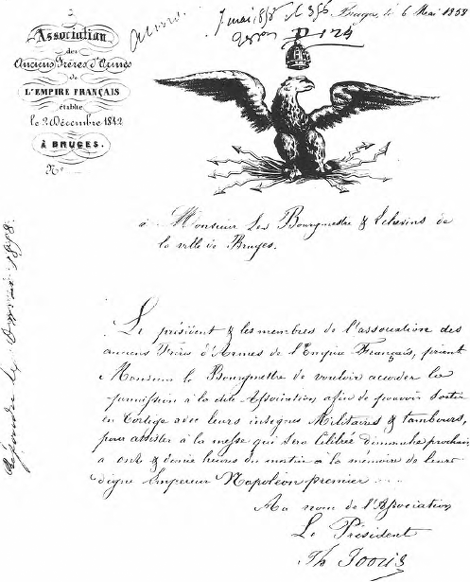 Association
des
Anciens Frères d'Armes
de
L'EMPIRE FRANÇAIS
établie
le 2 Décembre 1842
À BRUGES.
N°
7 mai 1858
Bruges, le 6 Mai 1858
à Monsieur Les Bourgmestre & Echevins de
la ville de Bruges.
Le président & les membres de l'association des
anciens Frères d'Armes de l'Empire Français, prient
Monsieur le Bourgmestre de vouloir accorder la
permission à la dite Association afin de pouvoir sortir
en Cortège avec leurs insignes Militaires & tambours,
pour assister à la messe qui sera célébrée dimanche prochain
a onze & demie heures du matin a la mémoire de leur
digne Empereur Napoléon premier
Au nom de l'Association
Le Président
Th Jooris